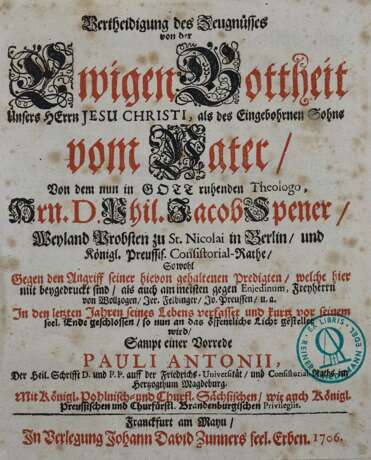 Vertheidigung des Zeugnüsses
von der
Ewigen Gottheit
Unsers HErrn JESU CHRISTI, als des Eingebohrnen Sohns
vom Vater/
Von dem nun in GOTT ruhenden Theologo,
Hrn. D. Phil. Jacob Spener/
Weyland Probsten zu St. Nicolai in Berlin/ und
Königl. Preussis. Consistorial-Rathe/
So wohl
Gegen den Angriff seiner hievon gehaltenen Predigten/ welche hier
mit beygedruckt sind/ als auch am meisten gegen Enjedinum, Freyherrn
von Wollzogen/ Jer. Felbinger/ Jo. Preussen/ u. a.
In den letzten Jahren seines Lebens verfasset und kurtz vor seinem
seel. Ende geschlossen/ so nun an das öffentliche Licht gestellet
wird/
Sampt einer Vorrede
PAULI ANTONII,
Der Heil. Schrifft D. und P. P. auff der Friedrichs-Universität/ und Consistorial-Raths im
Hertzogthum Magdeburg.
Mit Königl. Pohlnisch- und Churfl. Sächsischen/ wie auch Königl.
Preussischen und Churfürstl. Brandenburgischen Privilegiis.
Franckfurt am Mayn/
In Verlegung Johann David Zunners seel. Erben. 1706.
EX LIBRIS